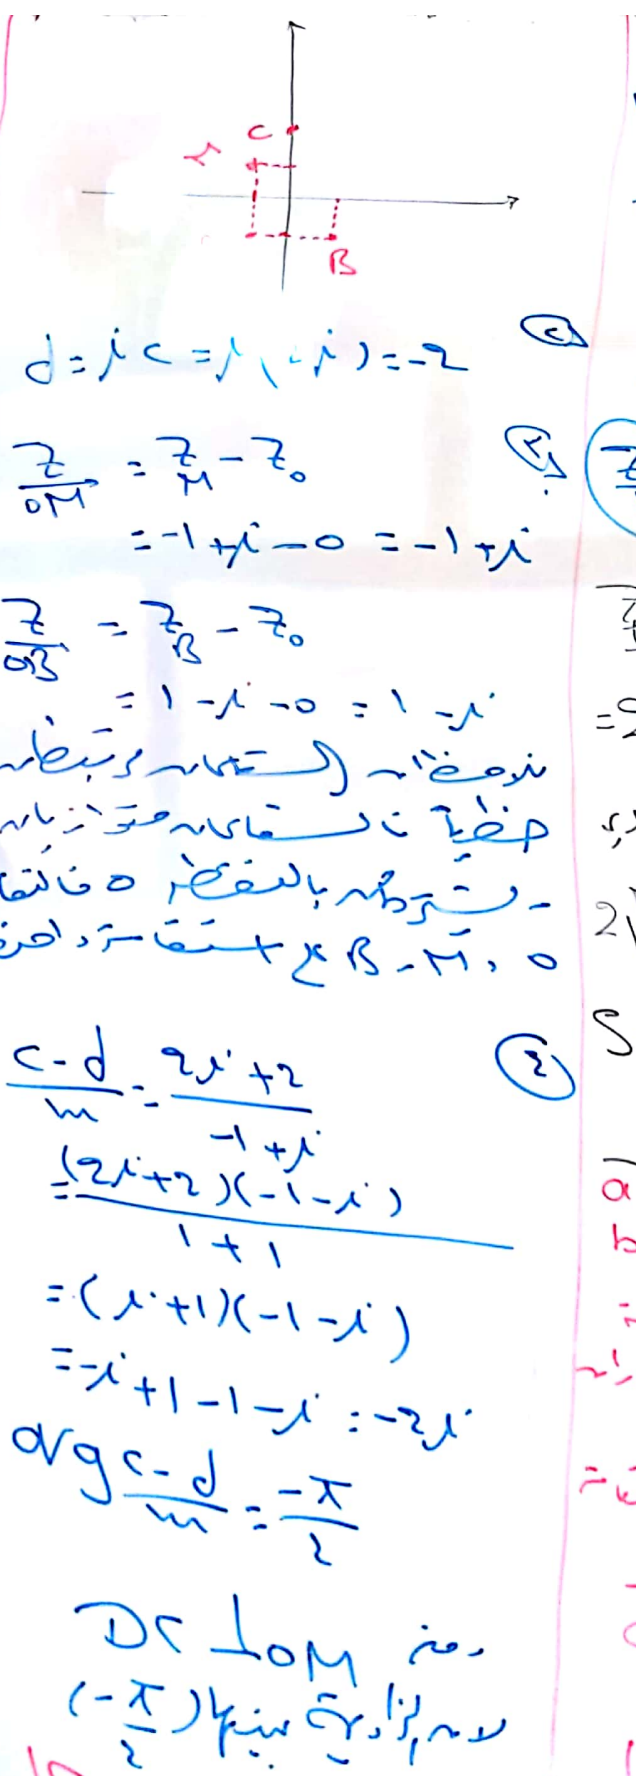 C
M
B
②
d = ic = i(2i) = -2
③
Z_OM = Z_M - Z_0
= -1+i-0 = -1+i
Z_OB = Z_B - Z_0
= 1-i-0 = 1-i
نلاحظ أن الشعاعين مرتبطين
خطياً فالشعاعان متوازيان
ومشتركان بالنقطة O فالنقاط
O, M, B على استقامة واحدة
④
(c-d)/m = (2i+2)/(-1+i)
= (2i+2)(-1-i)/(1+1)
= (i+1)(-1-i)
= -i+1-1-i = -2i
arg (c-d)/m = -π/2
ومنه DC ⊥ OM
لأن الزاوية بينهما (-π/2)